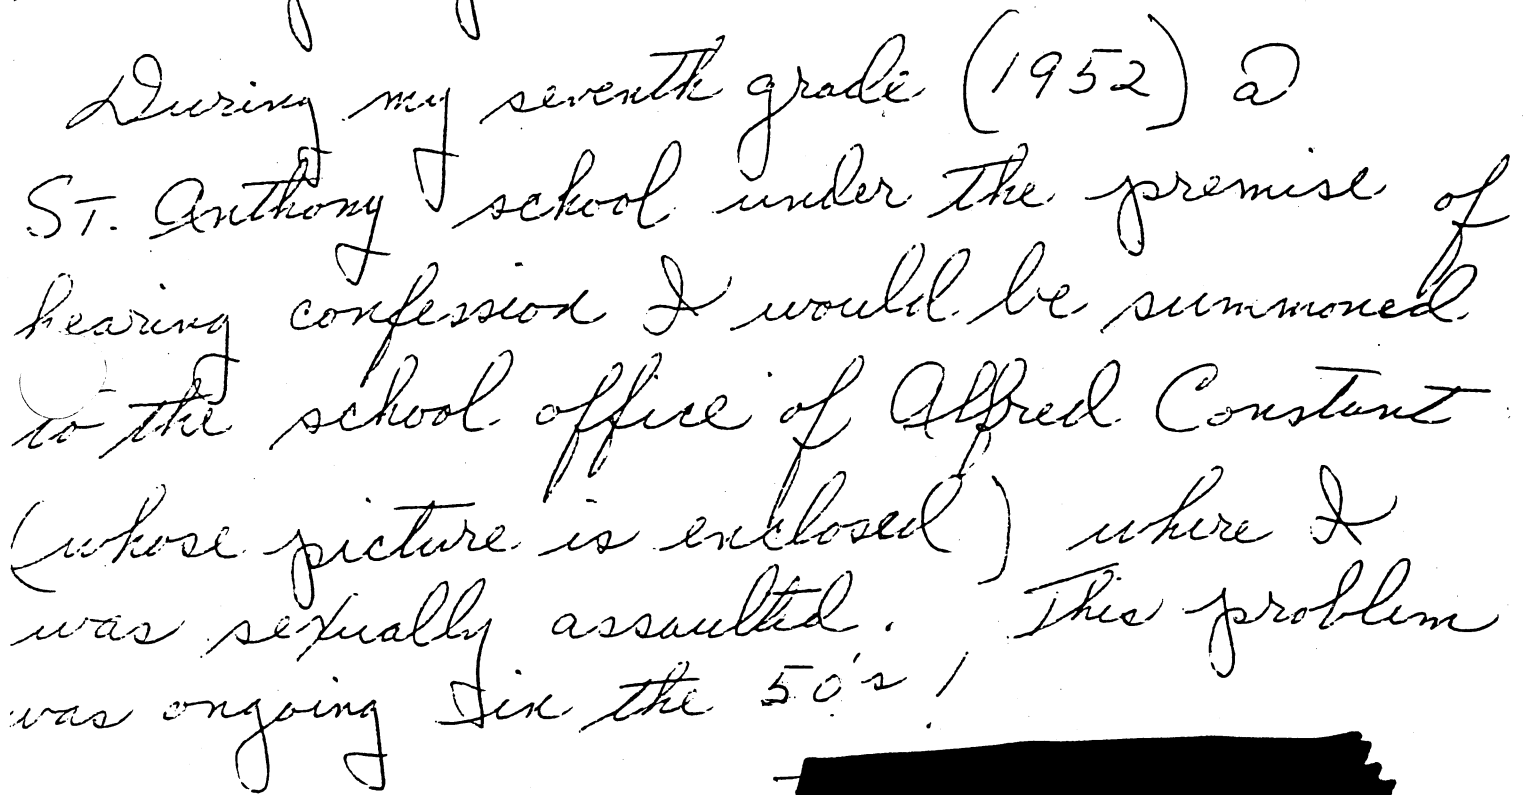 During my seventh grade (1952) @
ST. Anthony school under the premise of
hearing confession I would be summoned
to the school office of Alfred Constant
(whose picture is enclosed) where I
was sexually assaulted. This problem
was ongoing in the 50's!